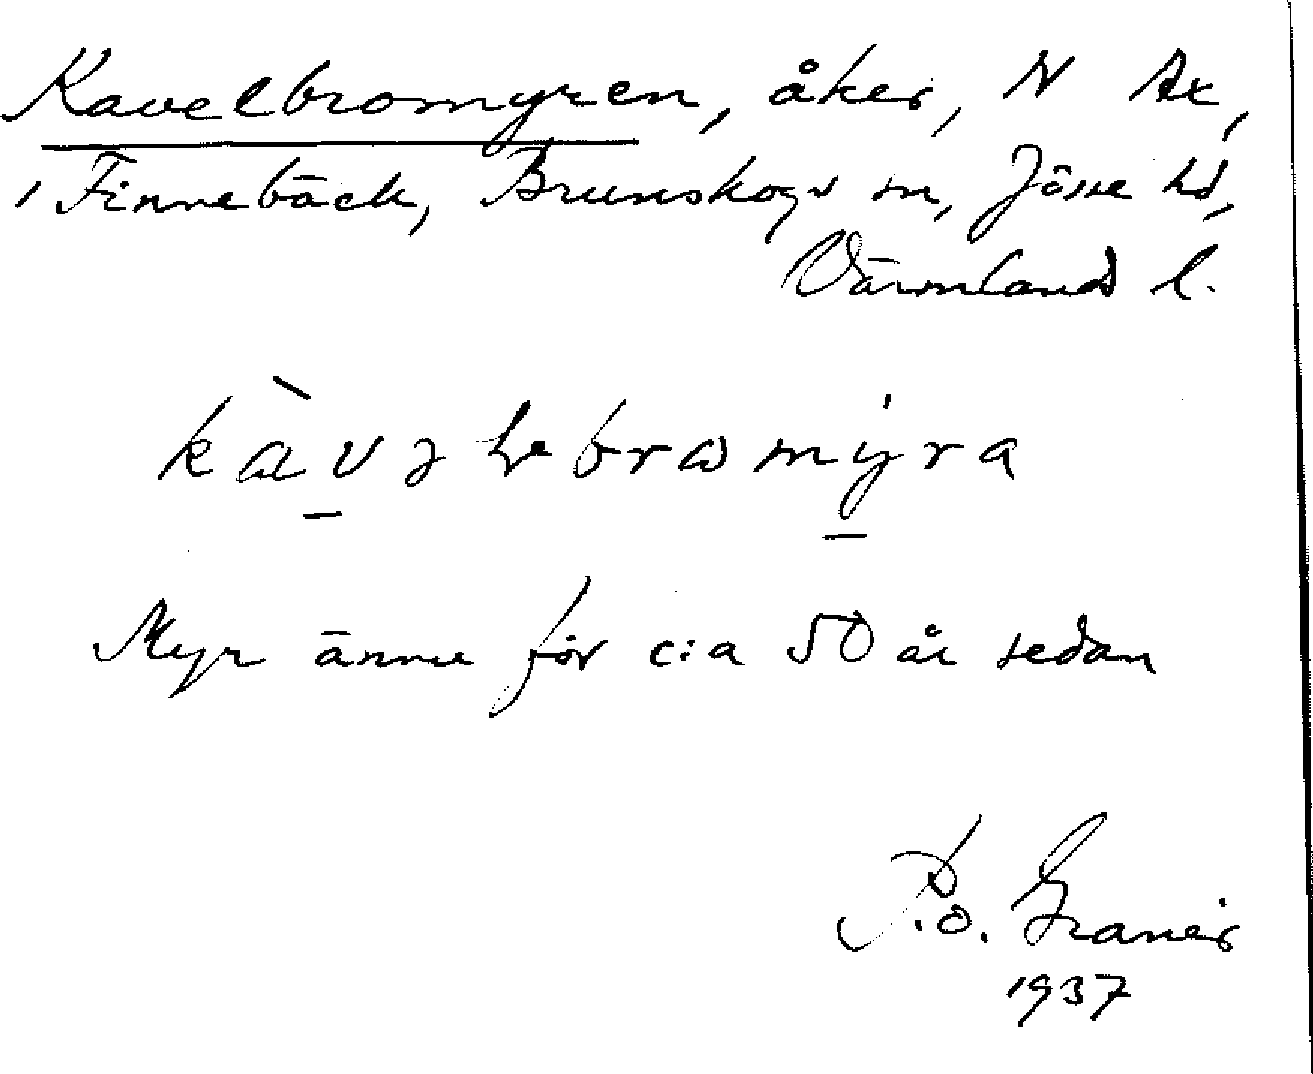 Kavelbromyren, åker, N Ax,
Finnebäck, Brunskogs sn, Jösse hd,
Värmlands l.
Myr ännu för c:a 50 år sedan
P.O. Granér
1937